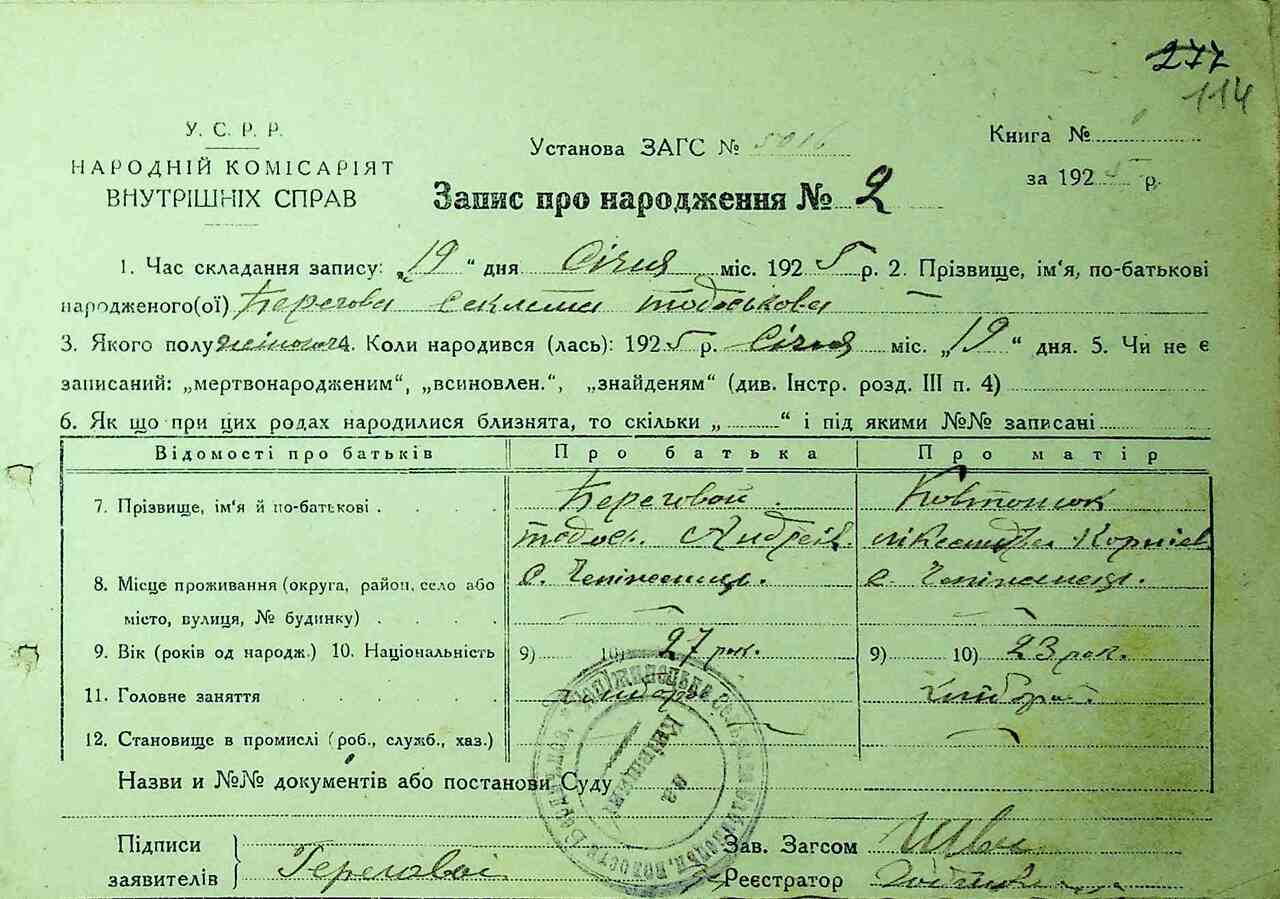 277
114
У. С. Р. Р.
НАРОДНІЙ КОМІСАРІЯТ
ВНУТРІШНІХ СПРАВ
Установа ЗАГС № 5016
Книга №
за 1925 р.
Запис про народження № 2
1. Час складання запису: „19“ дня Січня міс. 1925 р. 2. Прізвище, ім‘я, по-батькові
народженого(ої) Берегова Секлета Тодоськова
3. Якого полу жіночого 4. Коли народився (лась): 1925 р. Січня міс. „19“ дня. 5. Чи не є
записаний: „мертвонародженим“, „всиновлен.“, „знайденям“ (див. Інстр. розд. III п. 4)
6. Як що при цих родах народилися близнята, то скільки „ “ і під якими №№ записані
Відомості про батьків Про батька Про матір
7. Прізвище, ім‘я й по-батькові Береговой Ковтонюк
Тодос. Андреїв. Корніев
8. Місце проживання (округа, район, село або с. Чепіжинці. с. Чепіжинці.
місто, вулиця, № будинку)
9. Вік (років од народж.) 10. Національність 9) 10) 27 рок. 9) 10) 23 рок.
11. Головне заняття хлібороб
12. Становище в промислі (роб., служб., хаз.)
Назви и №№ документів або постанови Суду
Підписи
заявителів Береговой
Зав. Загсом
Реєстратор